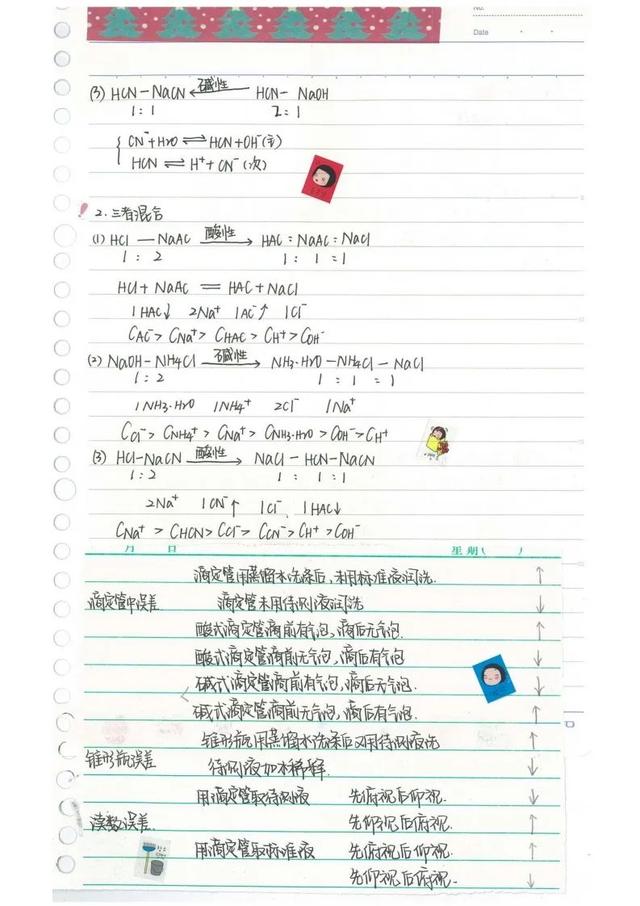 No.
Date
(3) HCN-NaCN ←碱性 HCN-NaOH
1:1 2=1
{ CN⁻+H₂O ⇌ HCN+OH⁻(主)
HCN ⇌ H⁺+CN⁻(次)
! 2.三者混合
(1) HCl — NaAC 酸性→ HAC : NaAC : NaCl
1 : 2 1 : 1 = 1
HCl + NaAC = HAC + NaCl
1HAC↓ 2Na⁺ 1AC⁻↑ 1Cl⁻
CAC⁻ > CNa⁺ > CHAC > CH⁺ > COH⁻
(2) NaOH-NH₄Cl 碱性→ NH₃·H₂O -NH₄Cl - NaCl
1 : 2 1 : 1 = 1
1NH₃·H₂O 1NH₄⁺ 2Cl⁻ 1Na⁺
CCl⁻ > CNH₄⁺ > CNa⁺ > CNH₃·H₂O > COH⁻ > CH⁺
(3) HCl-NaCN 酸性→ NaCl - HCN-NaCN
1:2 1 : 1 : 1
2Na⁺ 1CN⁻↑ 1Cl⁻ 1HAC↓
CNa⁺ > CHCN > CCl⁻ > CCN⁻ > CH⁺ > COH⁻
月 日 星期( )
滴定管用蒸馏水洗涤后,未用标准液润洗. ↑
滴定管中误差 滴定管未用待测液润洗 ↓
酸式滴定管滴前有气泡,滴后无气泡. ↑
酸式滴定管滴前无气泡,滴后有气泡 ↓
碱式滴定管滴前有气泡,滴后无气泡. ↓
碱式滴定管滴前无气泡,滴后有气泡. ↑
锥形瓶用蒸馏水洗涤后又用待测液洗 ↑
锥形瓶误差 待测液加水稀释. ↓
用滴定管取待测液 先俯视后仰视. ↓
读数误差. 先仰视后俯视. ↑
用滴定管取标准液 先俯视后仰视. ↑
先仰视后俯视. ↓